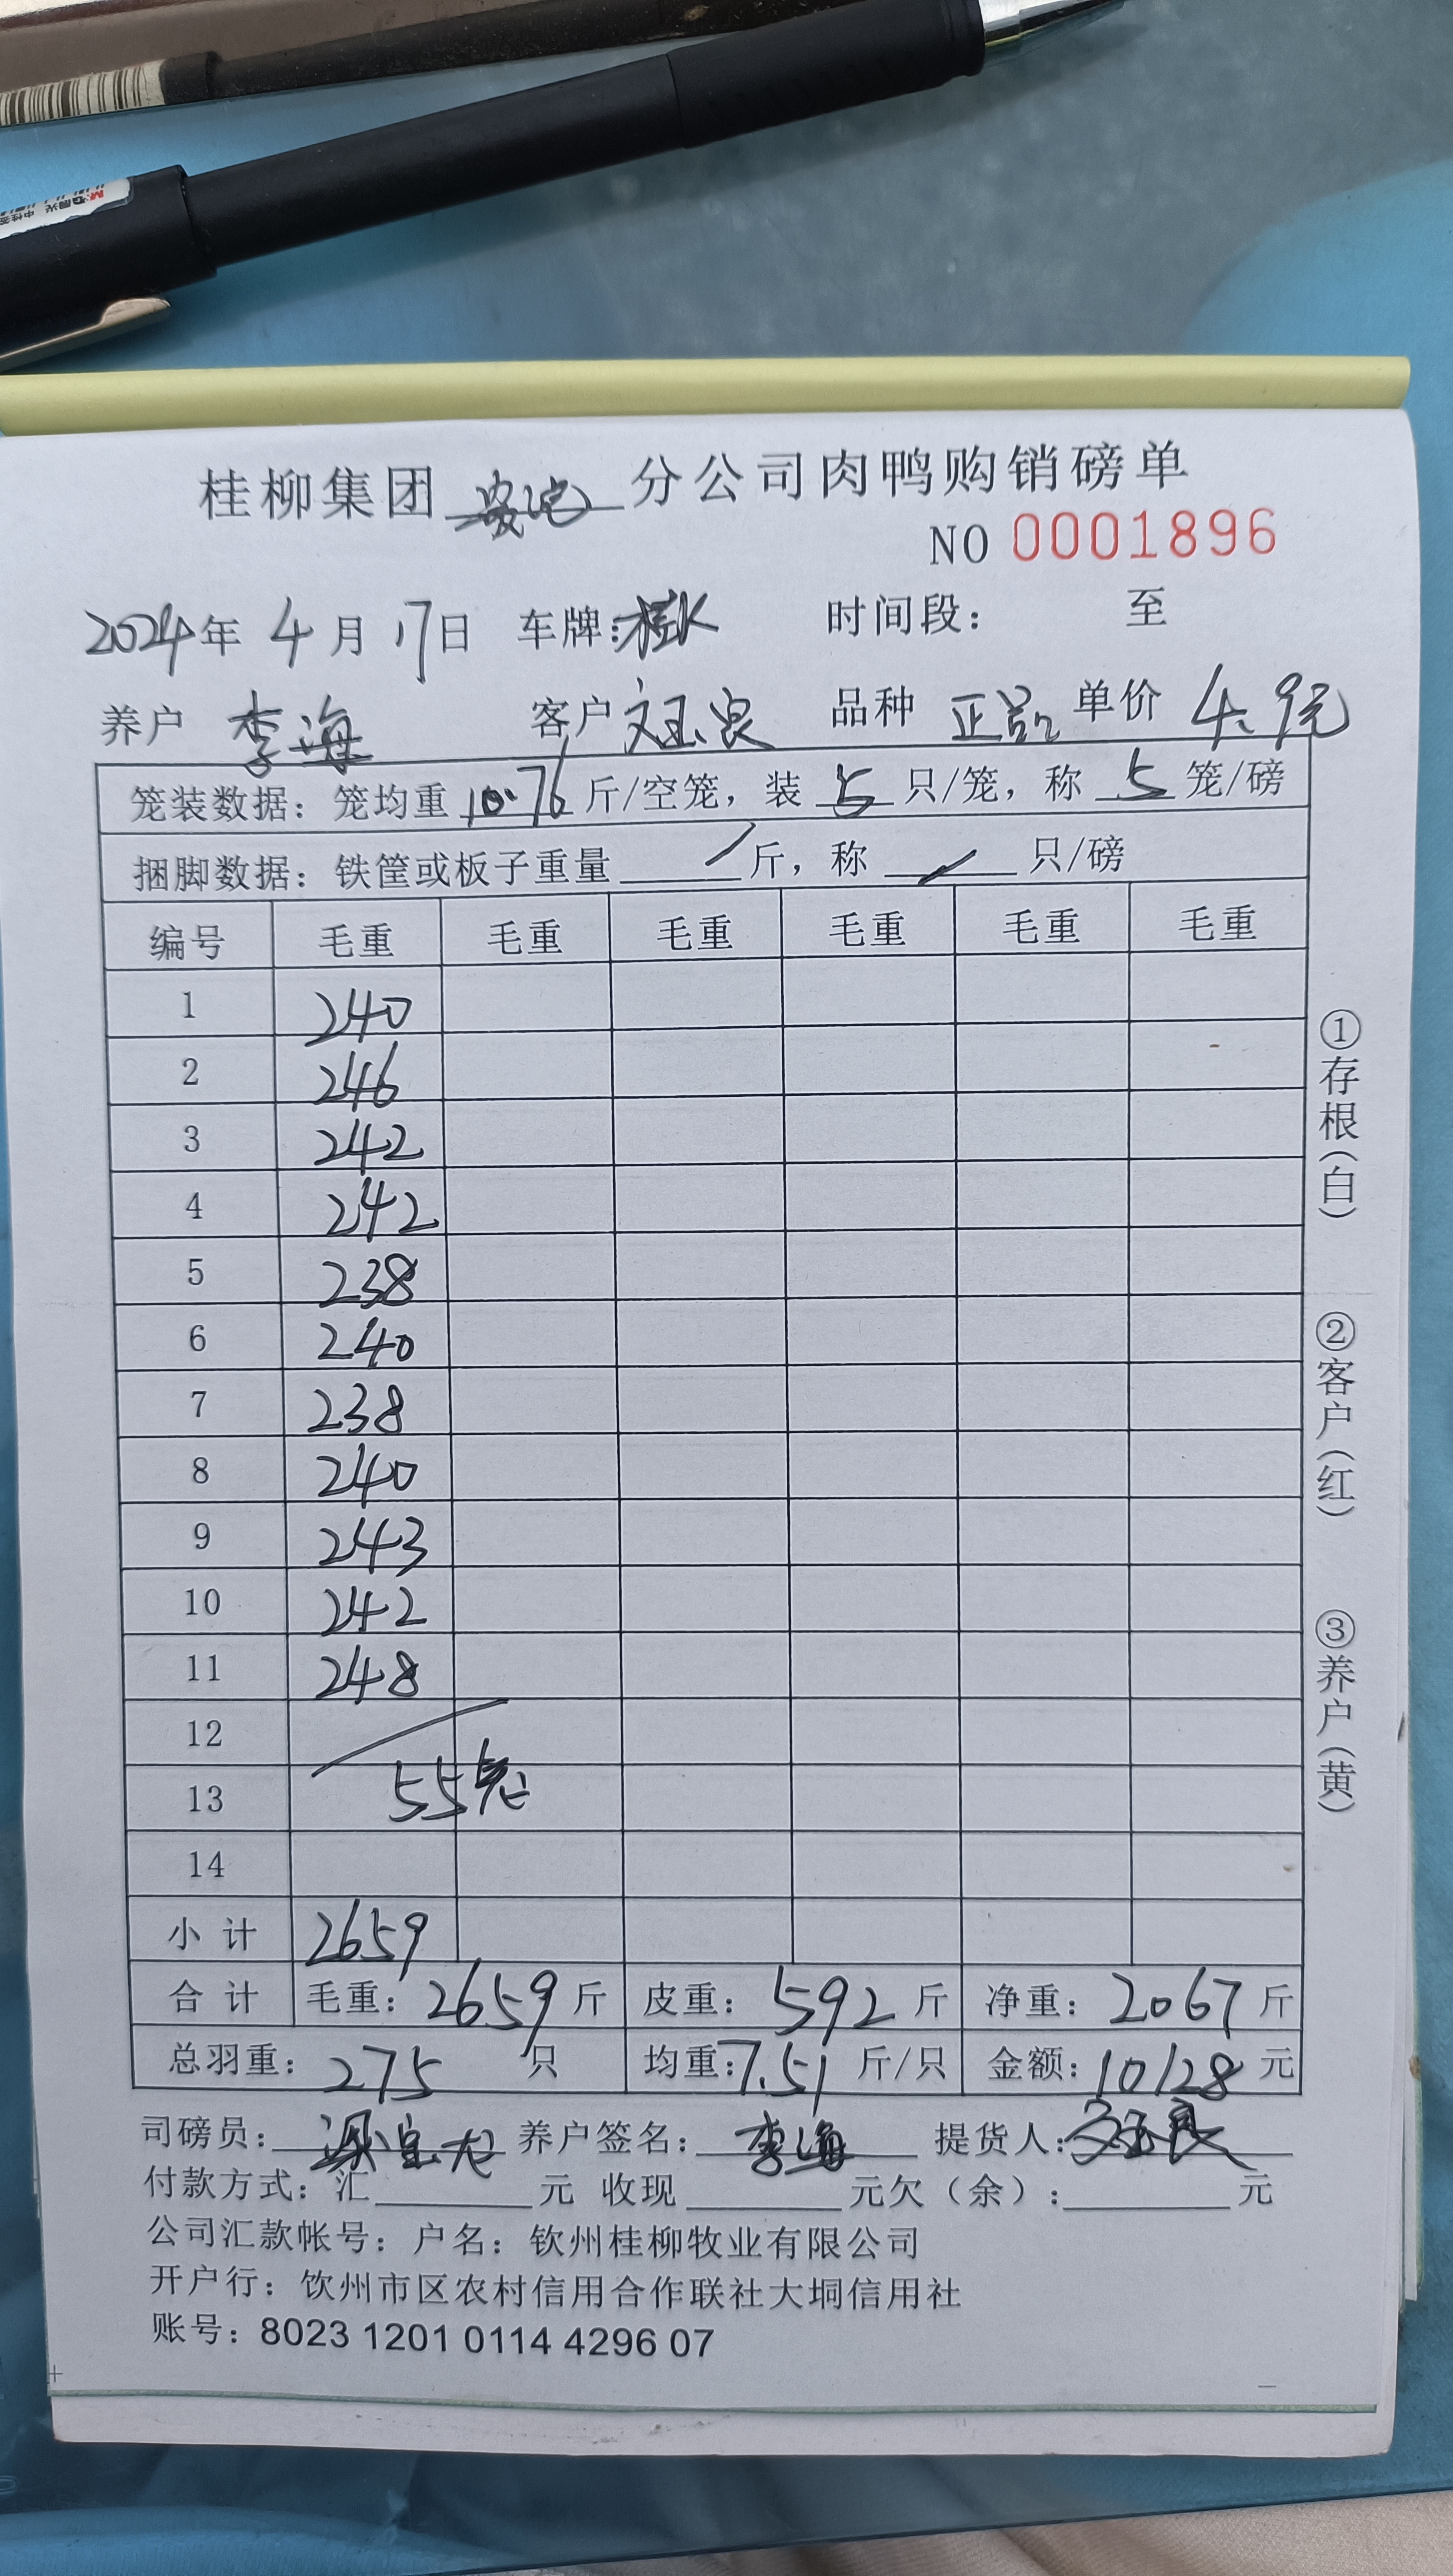 桂柳集团 分公司肉鸭购销磅单
NO 0001896
2024年 4月 17日 车牌: 时间段: 至
养户 李海 客户 文玉良 品种 正品 单价 4.9元
笼装数据：笼均重 10.76 斤/空笼，装 5 只/笼，称 5 笼/磅
捆脚数据：铁筐或板子重量 / 斤，称 / 只/磅
编号 毛重 毛重 毛重 毛重 毛重 毛重
1 240
2 246
3 242
4 242
5 238
6 240
7 238
8 240
9 243
10 242
11 248
12
13 55笼
14
小计 2659
合计 毛重：2659斤 皮重：592斤 净重：2067斤
总羽重：275 只 均重：7.51 斤/只 金额：10128元
司磅员： 养户签名：李海 提货人：文玉良
付款方式：汇 元 收现 元欠（余）： 元
公司汇款帐号：户名：钦州桂柳牧业有限公司
开户行：饮州市区农村信用合作联社大垌信用社
账号：8023 1201 0114 4296 07
①存根（白）
②客户（红）
③养户（黄）